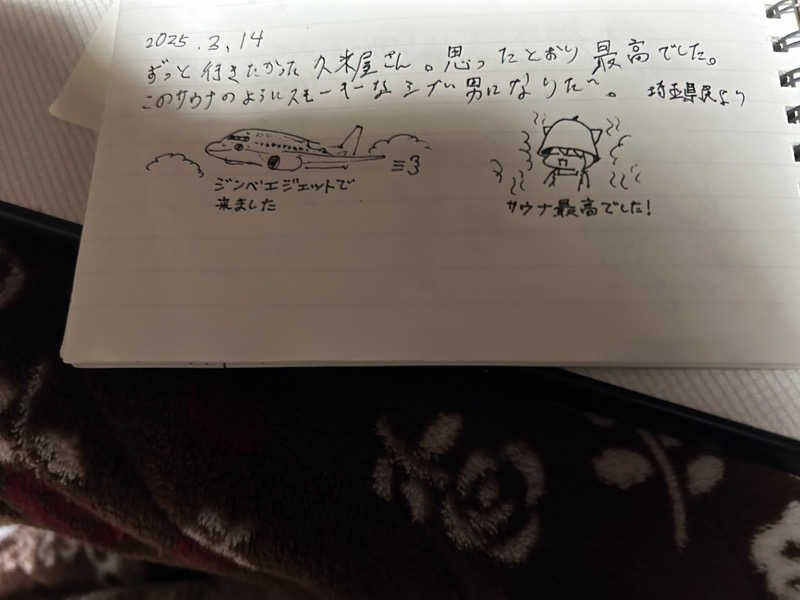 2025.3.14
ずっと行きたかった久米屋さん。思ったとおり最高でした。
このサウナのようにスモーキーなシブい男になりたい。 埼玉県民より
ジンベエジェットで
来ました
サウナ最高でした!